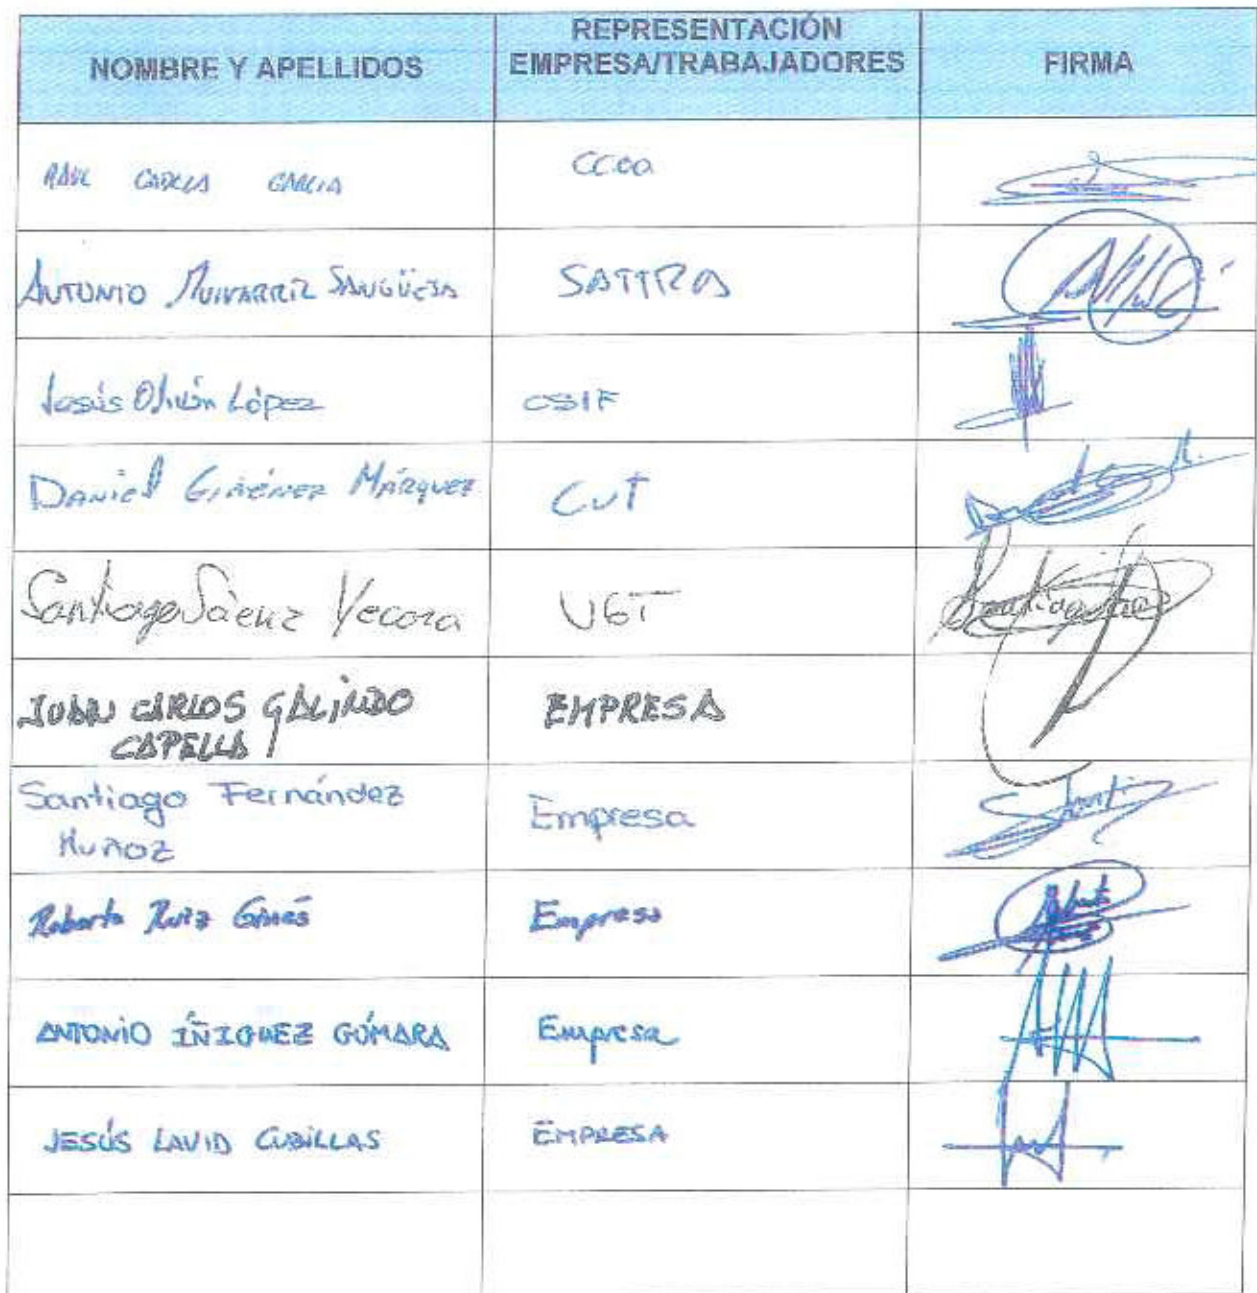 NOMBRE Y APELLIDOS
REPRESENTACIÓN
EMPRESA/TRABAJADORES
FIRMA
RAUL GARCIA
CCOO
ANTONIO SANGÜESA
SATTRA
Jesús Oliván López
CSIF
Daniel Giménez Márquez
CUT
Santiago Sáenz Yecora
UGT
JUAN CARLOS GALINDO
CAPELLA
EMPRESA
Santiago Fernández
Muñoz
Empresa
Roberto Ruiz Ginés
Empresa
ANTONIO IÑIGUEZ GÓMARA
Empresa
JESÚS LAVID CUBILLAS
EMPRESA